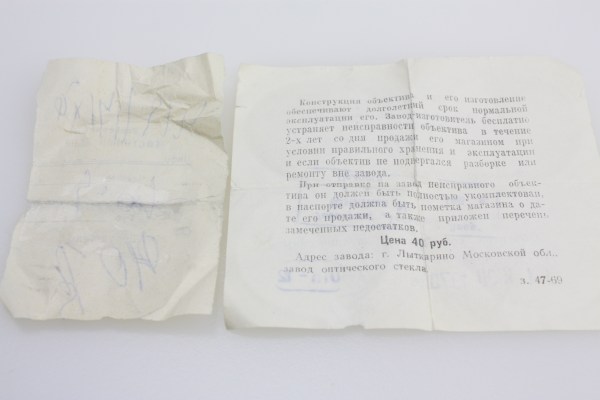 Конструкция объектива и его изготовление
обеспечивают долголетний срок нормальной
эксплуатации его. Завод-изготовитель бесплатно
устраняет неисправности объектива в течение
2-х лет со дня продажи его магазином при
условии правильного хранения и эксплуатации
и если объектив не подвергался разборке или
ремонту вне завода.
При отправке на завод неисправного объек-
тива он должен быть полностью укомплектован,
в паспорте должна быть пометка магазина о да-
те его продажи, а также приложен перечень
замеченных недостатков.
Цена 40 руб.
Адрес завода: г. Лыткарино Московской обл.,
завод оптического стекла.
з. 47-69